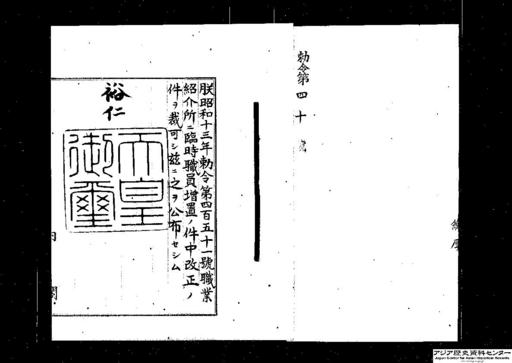 勅令第四十號
朕昭和十三年勅令第四百五十一號職業
紹介所ニ臨時職員增置ノ件中改正ノ
件ヲ裁可シ茲ニ之ヲ公布セシム
裕仁
天皇
御璽
内
閣
アジア歴史資料センター
Japan Center for Asian Historical Records